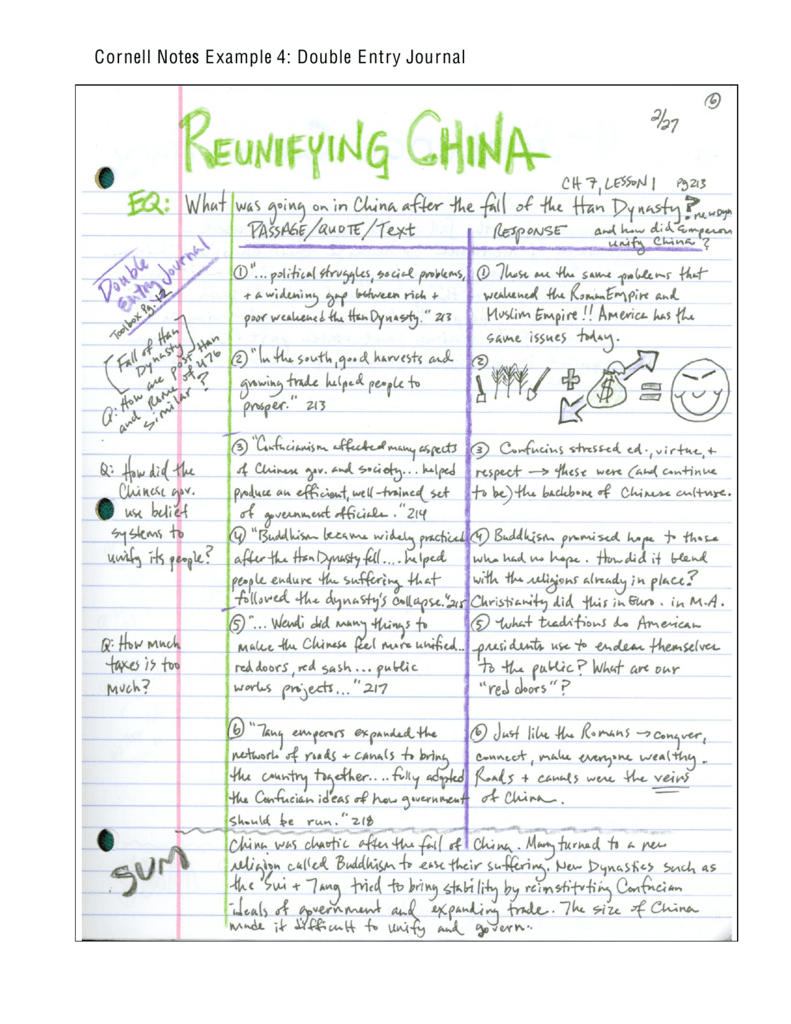 Cornell Notes Example 4: Double Entry Journal
6
2/27
REUNIFYING CHINA
CH 7, LESSON 1 pg 213
EQ: What was going on in China after the fall of the Han Dynasty?
and how did Emperors
unify China?
PASSAGE/QUOTE/Text
RESPONSE
Double
Entry Journal
Toolbox Pg. 12
[Fall of Han
Dynasty]
Q: How are post Han
and Rome of 476
similar?
① "... political struggles, social problems,
+ a widening gap between rich +
poor weakened the Han Dynasty." 213
① These are the same problems that
weakened the Roman Empire and
Muslim Empire!! America has the
same issues today.
② "In the south, good harvests and
growing trade helped people to
prosper." 213
②
+ $ =
Q: How did the
Chinese gov.
use belief
systems to
unify its people?
③ "Confucianism affected many aspects
of Chinese gov. and society... helped
produce an efficient, well-trained set
of government officials." 214
③ Confucius stressed ed., virtue, +
respect → these were (and continue
to be) the backbone of Chinese culture.
④ "Buddhism became widely practiced
after the Han Dynasty fell.... helped
people endure the suffering that
followed the dynasty's collapse." 215
④ Buddhism promised hope to those
who had no hope. How did it blend
with the religions already in place?
Christianity did this in Euro. in M.A.
Q: How much
taxes is too
much?
⑤ "... Wendi did many things to
make the Chinese feel more unified..
red doors, red sash... public
works projects..." 217
⑤ What traditions do American
presidents use to endear themselves
to the public? What are our
"red doors"?
⑥ "Tang emperors expanded the
network of roads + canals to bring
the country together.... fully adopted
the Confucian ideas of how government
should be run." 218
⑥ Just like the Romans → conquer,
connect, make everyone wealthy.
Roads + canals were the veins
of China.
SUM
China was chaotic after the fall of China. Many turned to a new
religion called Buddhism to ease their suffering. New Dynasties such as
the Sui + Tang tried to bring stability by reinstituting Confucian
ideals of government and expanding trade. The size of China
made it difficult to unify and govern.